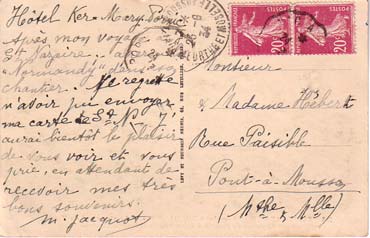 Hôtel Ker-Mary Pornic
Après mon voyage
St Nazaire
"Normandy" dans son
chantier. Je regrette
n'avoir pu envoyer
ma carte de St N. J'
aurai bientôt le plaisir
de vous voir et vous
prie, en attendant de
recevoir mes très
bons souvenirs.
M. Jacquot
Monsieur
& Madame Hébert
Rue Paisible
Pont-à-Mousson
(Mthe & Mlle)
POSTES
20c
POSTES
20c
MEURTHE ET MOSELLE